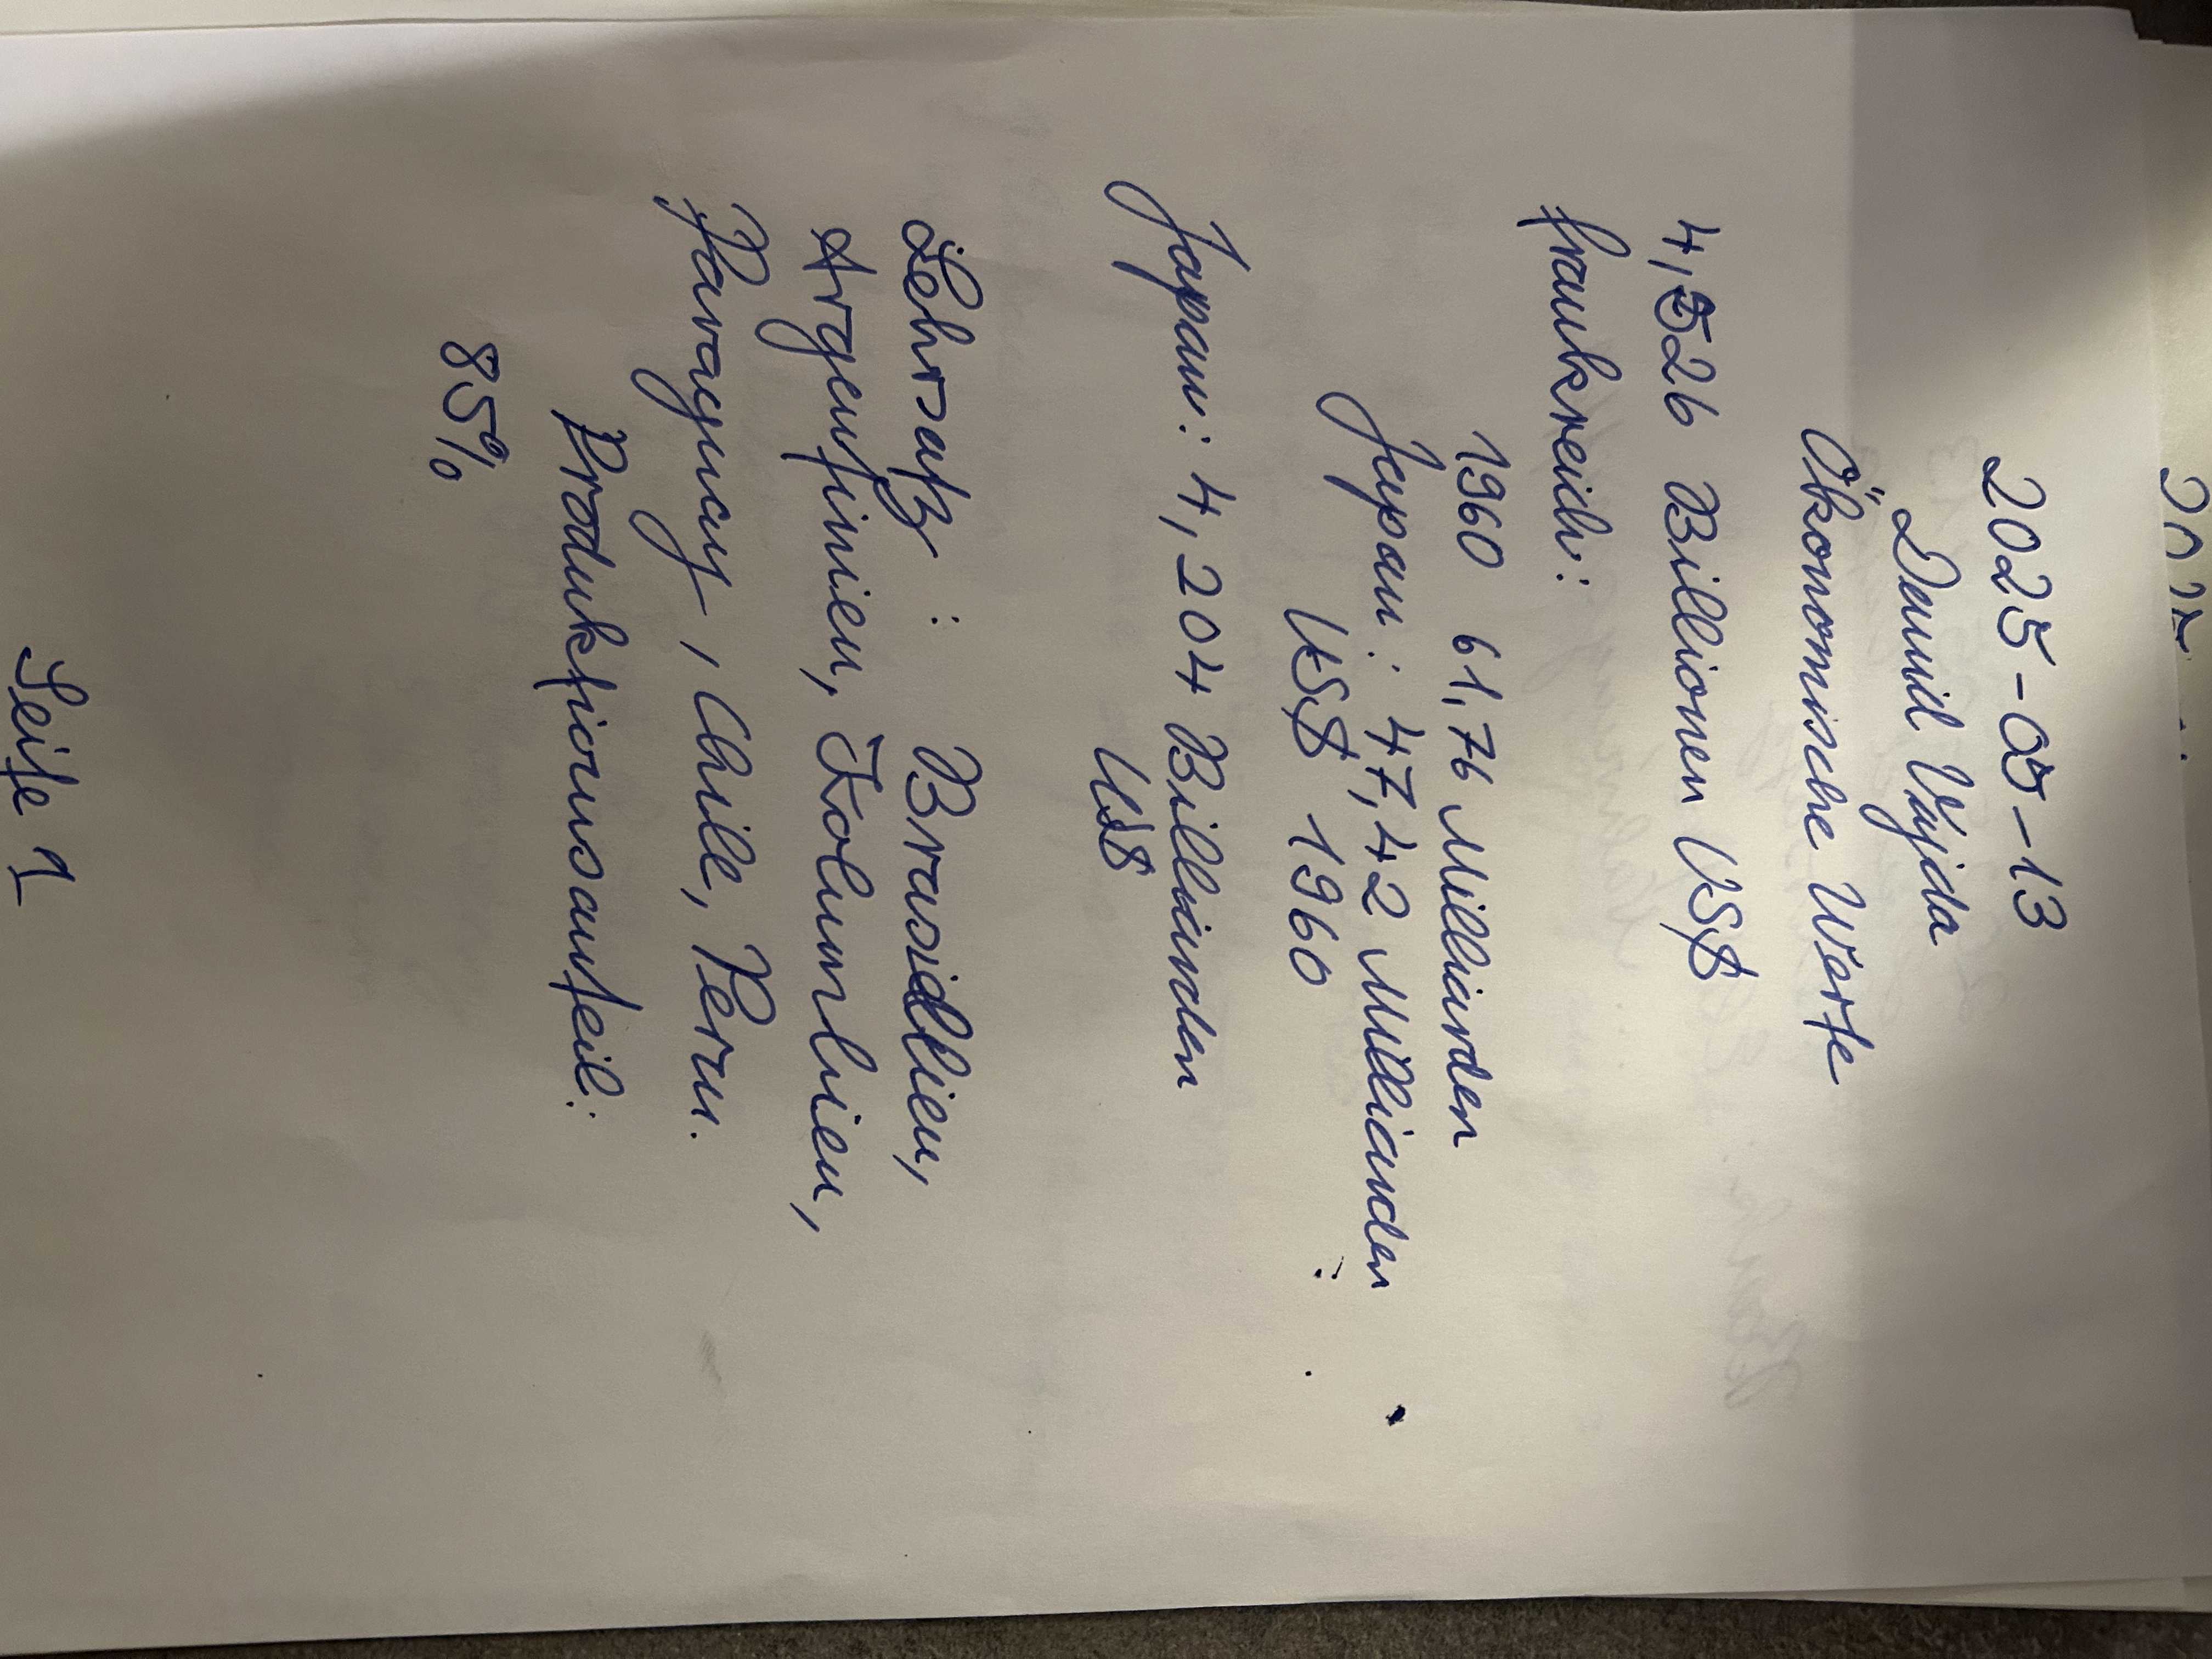 2025-05-13
Demid Vujda
Ökonomische Worte
4,526 Billionen US$
Frankreich:
1960 61,76 Milliarden
Japan: 47,42 Milliarden
US$ 1960
Japan: 4,204 Billionen
US$
Lehrsatz: Brasidlien,
Argentinien, Kolumbien,
Paraguay, Chile, Peru.
Produktionsanteil:
85%
Seite 1